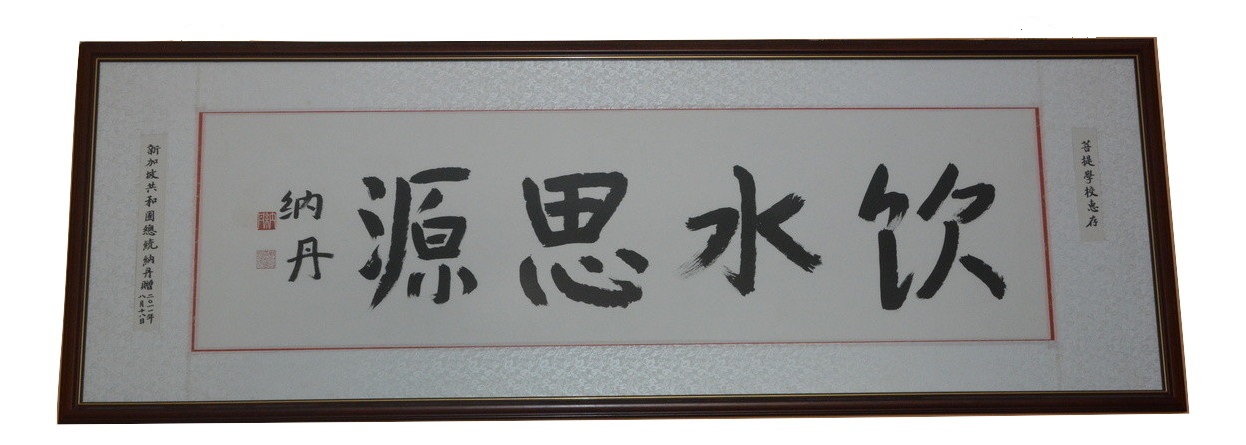 菩提學校惠存
饮水思源
纳丹
新加坡共和國總統納丹贈
二〇一一年
八月十八日